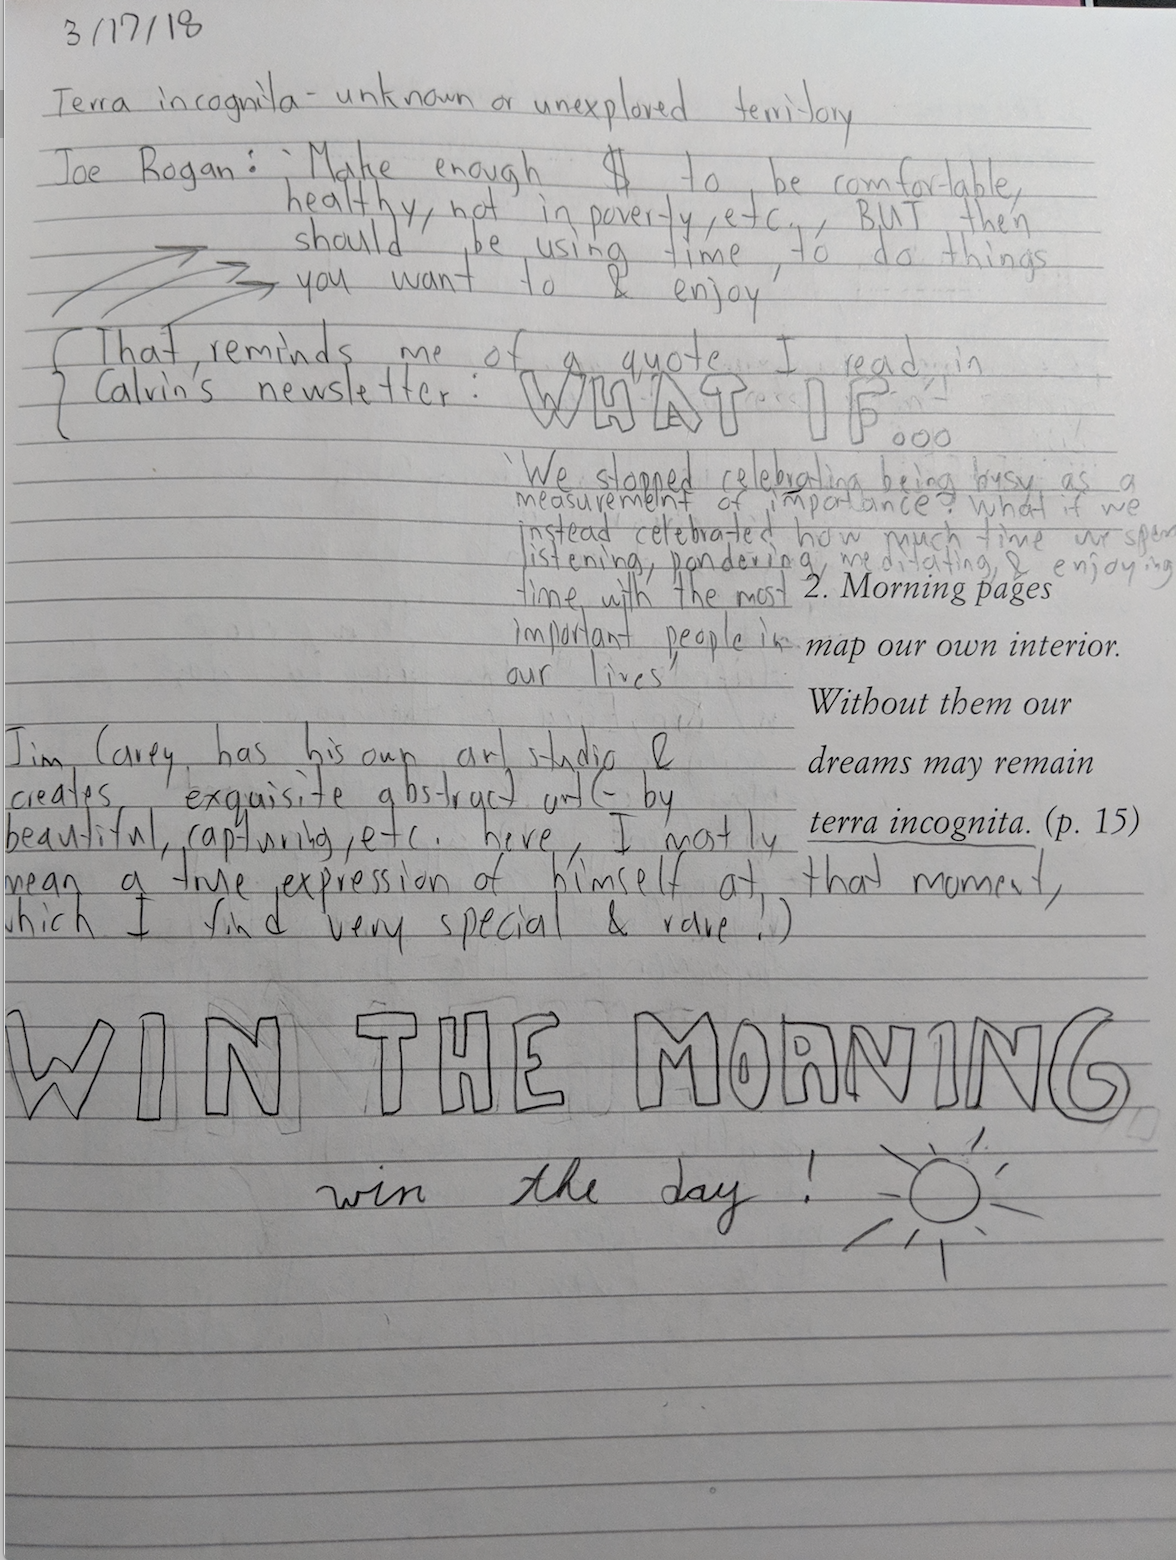 3/17/18
Terra incognita - unknown or unexplored territory
Joe Rogan: 'Make enough $ to be comfortable,
healthy, not in poverty, etc., BUT then
should be using time to do things
you want to & enjoy'
That reminds me of a quote I read in
Calvin's newsletter: WHAT IF...
'We stopped celebrating being busy as a
measurement of importance? What if we
instead celebrated how much time we spen
listening, pondering, meditating, & enjoying
time with the most
important people in
our lives'
2. Morning pages
map our own interior.
Without them our
dreams may remain
terra incognita. (p. 15)
Jim Carey has his own art studio &
creates exquisite abstract art (- by
beautiful, capturing, etc. here, I mostly
mean a true expression of himself at that moment,
which I find very special & rare!)
WIN THE MORNING
win the day!